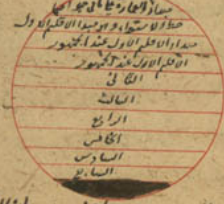 مبدا العمارة
خط الاستواء وهو مبدا الاقليم الاول
مبداء الاقليم الاول عند الجمهور
الاقليم الاول عند الجمهور
الثاني
الثالث
الرابع
الخامس
السادس
السابع